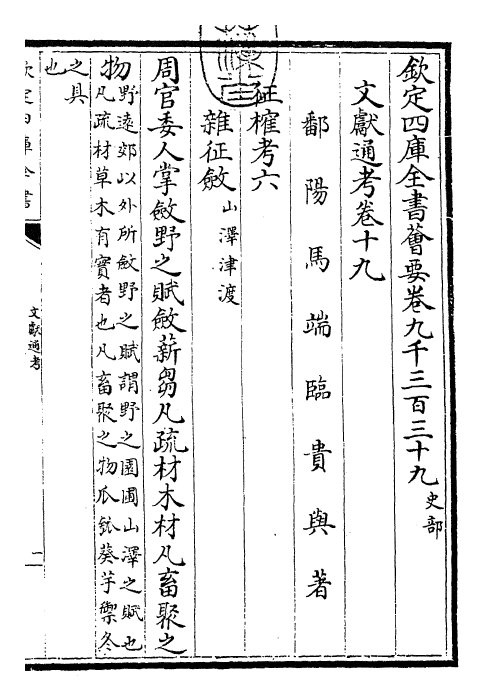 欽定四庫全書薈要卷九千三百三十九史部
文獻通考卷十九
鄱陽馬端臨貴與著
征榷考六
雜征斂山澤津渡
周官委人掌斂野之賦斂薪芻凡疏材木材凡畜聚之
物野遠郊以外所斂野之賦謂野之園圃山澤之賦也
凡疏材草木有實者也凡畜聚之物瓜瓠葵芋禦冬
之具
也
欽定四庫全書
文獻通考